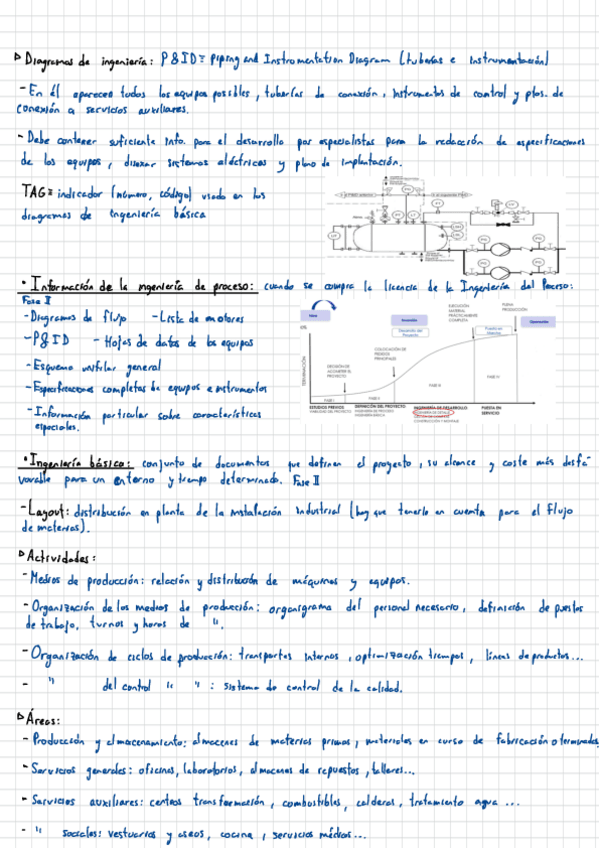 ▷ Diagramas de ingeniería: P&ID ≡ Piping and Instrumentation Diagram (tuberías e instrumentación)
- En él aparecen todos los equipos posibles, tuberías de conexión, instrumentos de control y ptos. de
conexión a servicios auxiliares.
- Debe contener suficiente info. para el desarrollo por especialistas para la redacción de especificaciones
de los equipos, diseñar sistemas eléctricos y plano de implantación.
TAG ≡ indicador (número, código) usado en los
diagramas de ingeniería básica
• Información de la ingeniería de proceso: cuando se compra la licencia de la Ingeniería del Proceso:
Fase II
- Diagramas de flujo - Lista de motores
- P&ID - Hojas de datos de los equipos
- Esquema unifilar general
- Especificaciones completas de equipos e instrumentos
- Información particular sobre características
especiales.
EJECUCIÓN
MATERIAL
PRÁCTICAMENTE
COMPLETA
PLENA
PRODUCCIÓN
Desarrollo del
Proyecto
Puesta en
COLOCACIÓN DE
PEDIDOS
PRINCIPALES
DECISIÓN DE
ACOMETER EL
PROYECTO
FASE I
FASE II
FASE III
FASE IV
ESTUDIOS PREVIOS
DEFINICIÓN DEL PROYECTO
INGENIERÍA DE PROCESO
INGENIERÍA BÁSICA
INGENIERÍA DE DESARROLLO
INGENIERÍA DE DETALLE
CONSTRUCCIÓN Y MONTAJE
PUESTA EN
SERVICIO
• Ingeniería básica: conjunto de documentos que definen el proyecto, su alcance y coste más desfa-
vorable para un entorno y tiempo determinado. Fase II
- Layout: distribución en planta de la instalación industrial (hay que tenerlo en cuenta para el flujo
de materias).
▷ Actividades:
- Medios de producción: relación y distribución de máquinas y equipos.
- Organización de los medios de producción: organigrama del personal necesario, definición de puestos
de trabajo, turnos y horas de ".
- Organización de ciclos de producción: transportes internos, optimización tiempos, líneas de productos...
- " del control " " : sistema de control de la calidad.
▷ Áreas:
- Producción y almacenamiento: almacenes de materias primas, materiales en curso de fabricación o terminados
- Servicios generales: oficinas, laboratorios, almacenes de repuestos, talleres...
- Servicios auxiliares: centros transformación, combustibles, calderas, tratamiento agua ...
- " sociales: vestuarios y aseos, cocina, servicios médicos...